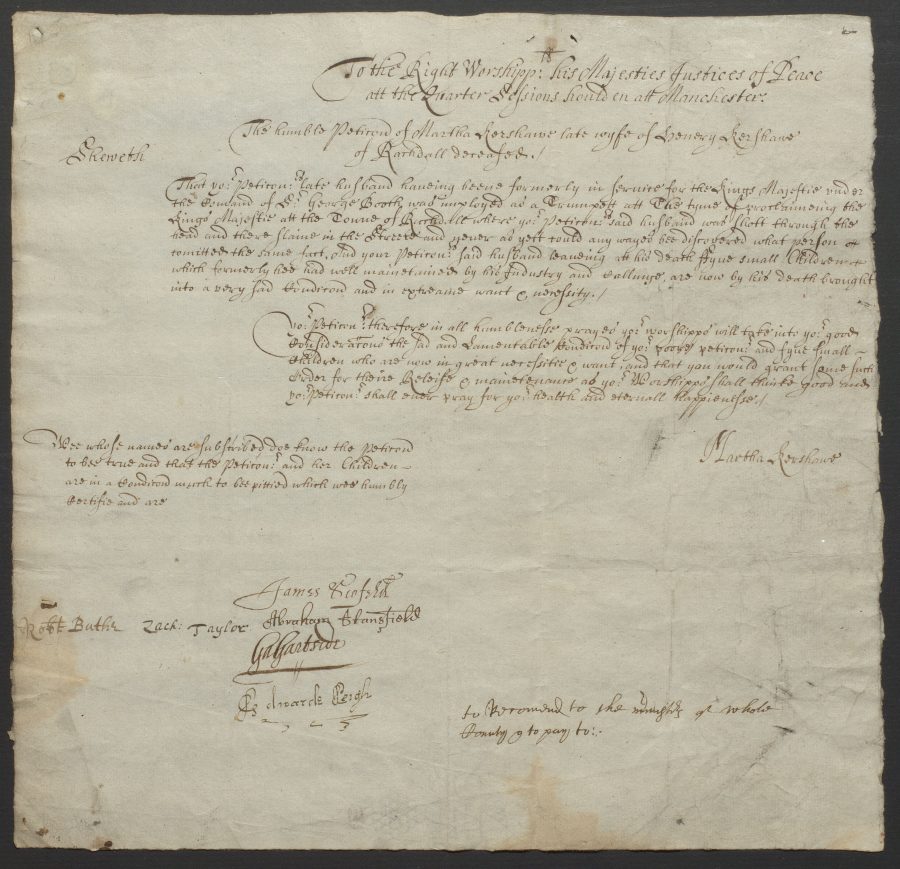 18
To the Right Worshipp: his Majesties Justices of Peace
att the Quarter Sessions houlden att Manchester.
The humble Peticon of Martha Kershawe late wyfe of Henery Kershawe
of Rachdall deceased./
Sheweth
That yor Peticonrs late husband haueing beene formerly in service for the Kings Majestie vnder
the Comand of Sr George Booth was imployed as a Trumpett att The tyme of proclaimeing the
Kings Majestie att the Towne of Rachdall where yor Peticonrs said husband was shott through the
head and there slaine in the Streete and never as yett could any wayes bee discovered what person
comitted the same fact, and your Peticonrs said husband leaveing att his death ffyve small Children
which formerly hee had well mainetained by his Industry and Callinge, are now by his death brought
into a very sad Condicon and in extreame want & necessity./
Yor Peticonr therefore in all humblenesse prayes yor worshipps will take into yor good
Consideracons the sad and Lamentable Condicon of yor poore peticonr and fyve small
Children who are now in great necessitie & want, and that you would grant some such
Order for theire Releife & maintenance as yor Worshipps shall thinke good and
yor Peticonr shall ever pray for yor health and eternall Happienesse./
Martha Kershawe
Wee whose names are subscribed doe know the Peticon
to bee true and that the Peticonr and her Children
are in a Condicon much to bee pittied which wee humbly
Certifie and are
James Scofeld
Robt Buthr Zach: Taylor Abraham Stansfield
Ga Gartside
Edwarde
to Recomend to the of whole
County & to pay to: